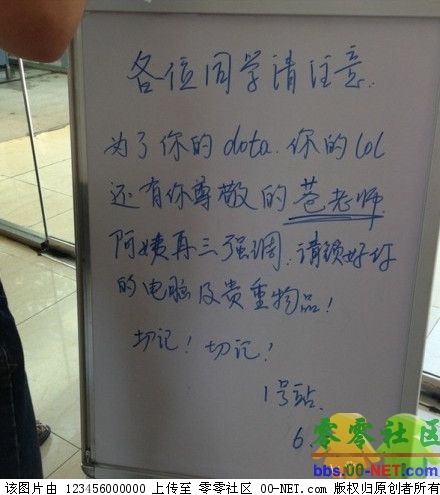 各位同学请注意.
为了你的dota.你的lol
还有你尊敬的苍老师.
阿姨再三强调.请锁好好
的电脑及贵重物品!
切记!切记!
1号站.
6.
零零社区
bbs.00-NET.com
该图片由 123456000000 上传至 零零社区 00-NET.com 版权归原创者所有